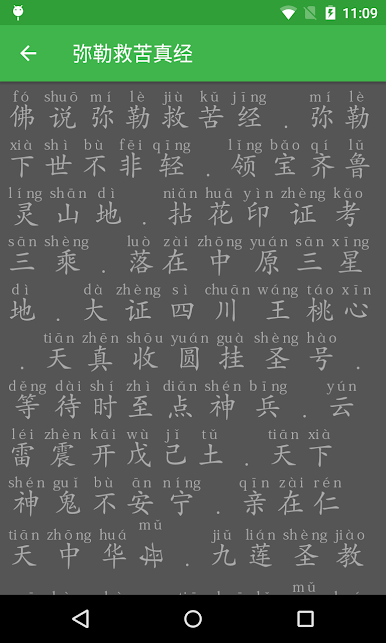 11:09
弥勒救苦真经
fó shuō mí lè jiù kǔ jīng mí lè
佛说弥勒救苦经．弥勒
xià shì bù fēi qīng lǐng bǎo qí lǔ
下世不非轻．领宝齐鲁
líng shān dì niān huā yìn zhèng kǎo
灵山地．拈花印证考
sān shèng luò zài zhōng yuán sān xīng
三乘．落在中原三星
dì dà zhèng sì chuān wáng táo xīn
地．大证四川王桃心
tiān zhēn shōu yuán guà shèng hào
．天真收圆挂圣号．
děng dài shí zhì diǎn shén bīng yún
等待时至点神兵．云
léi zhèn kāi wù jǐ tǔ tiān xià
雷震开戊己土．天下
shén guǐ bù ān níng qīn zài rén
神鬼不安宁．亲在仁
tiān zhōng huá mǔ jiǔ lián shèng jiào
天中华．九莲圣教
mǔ